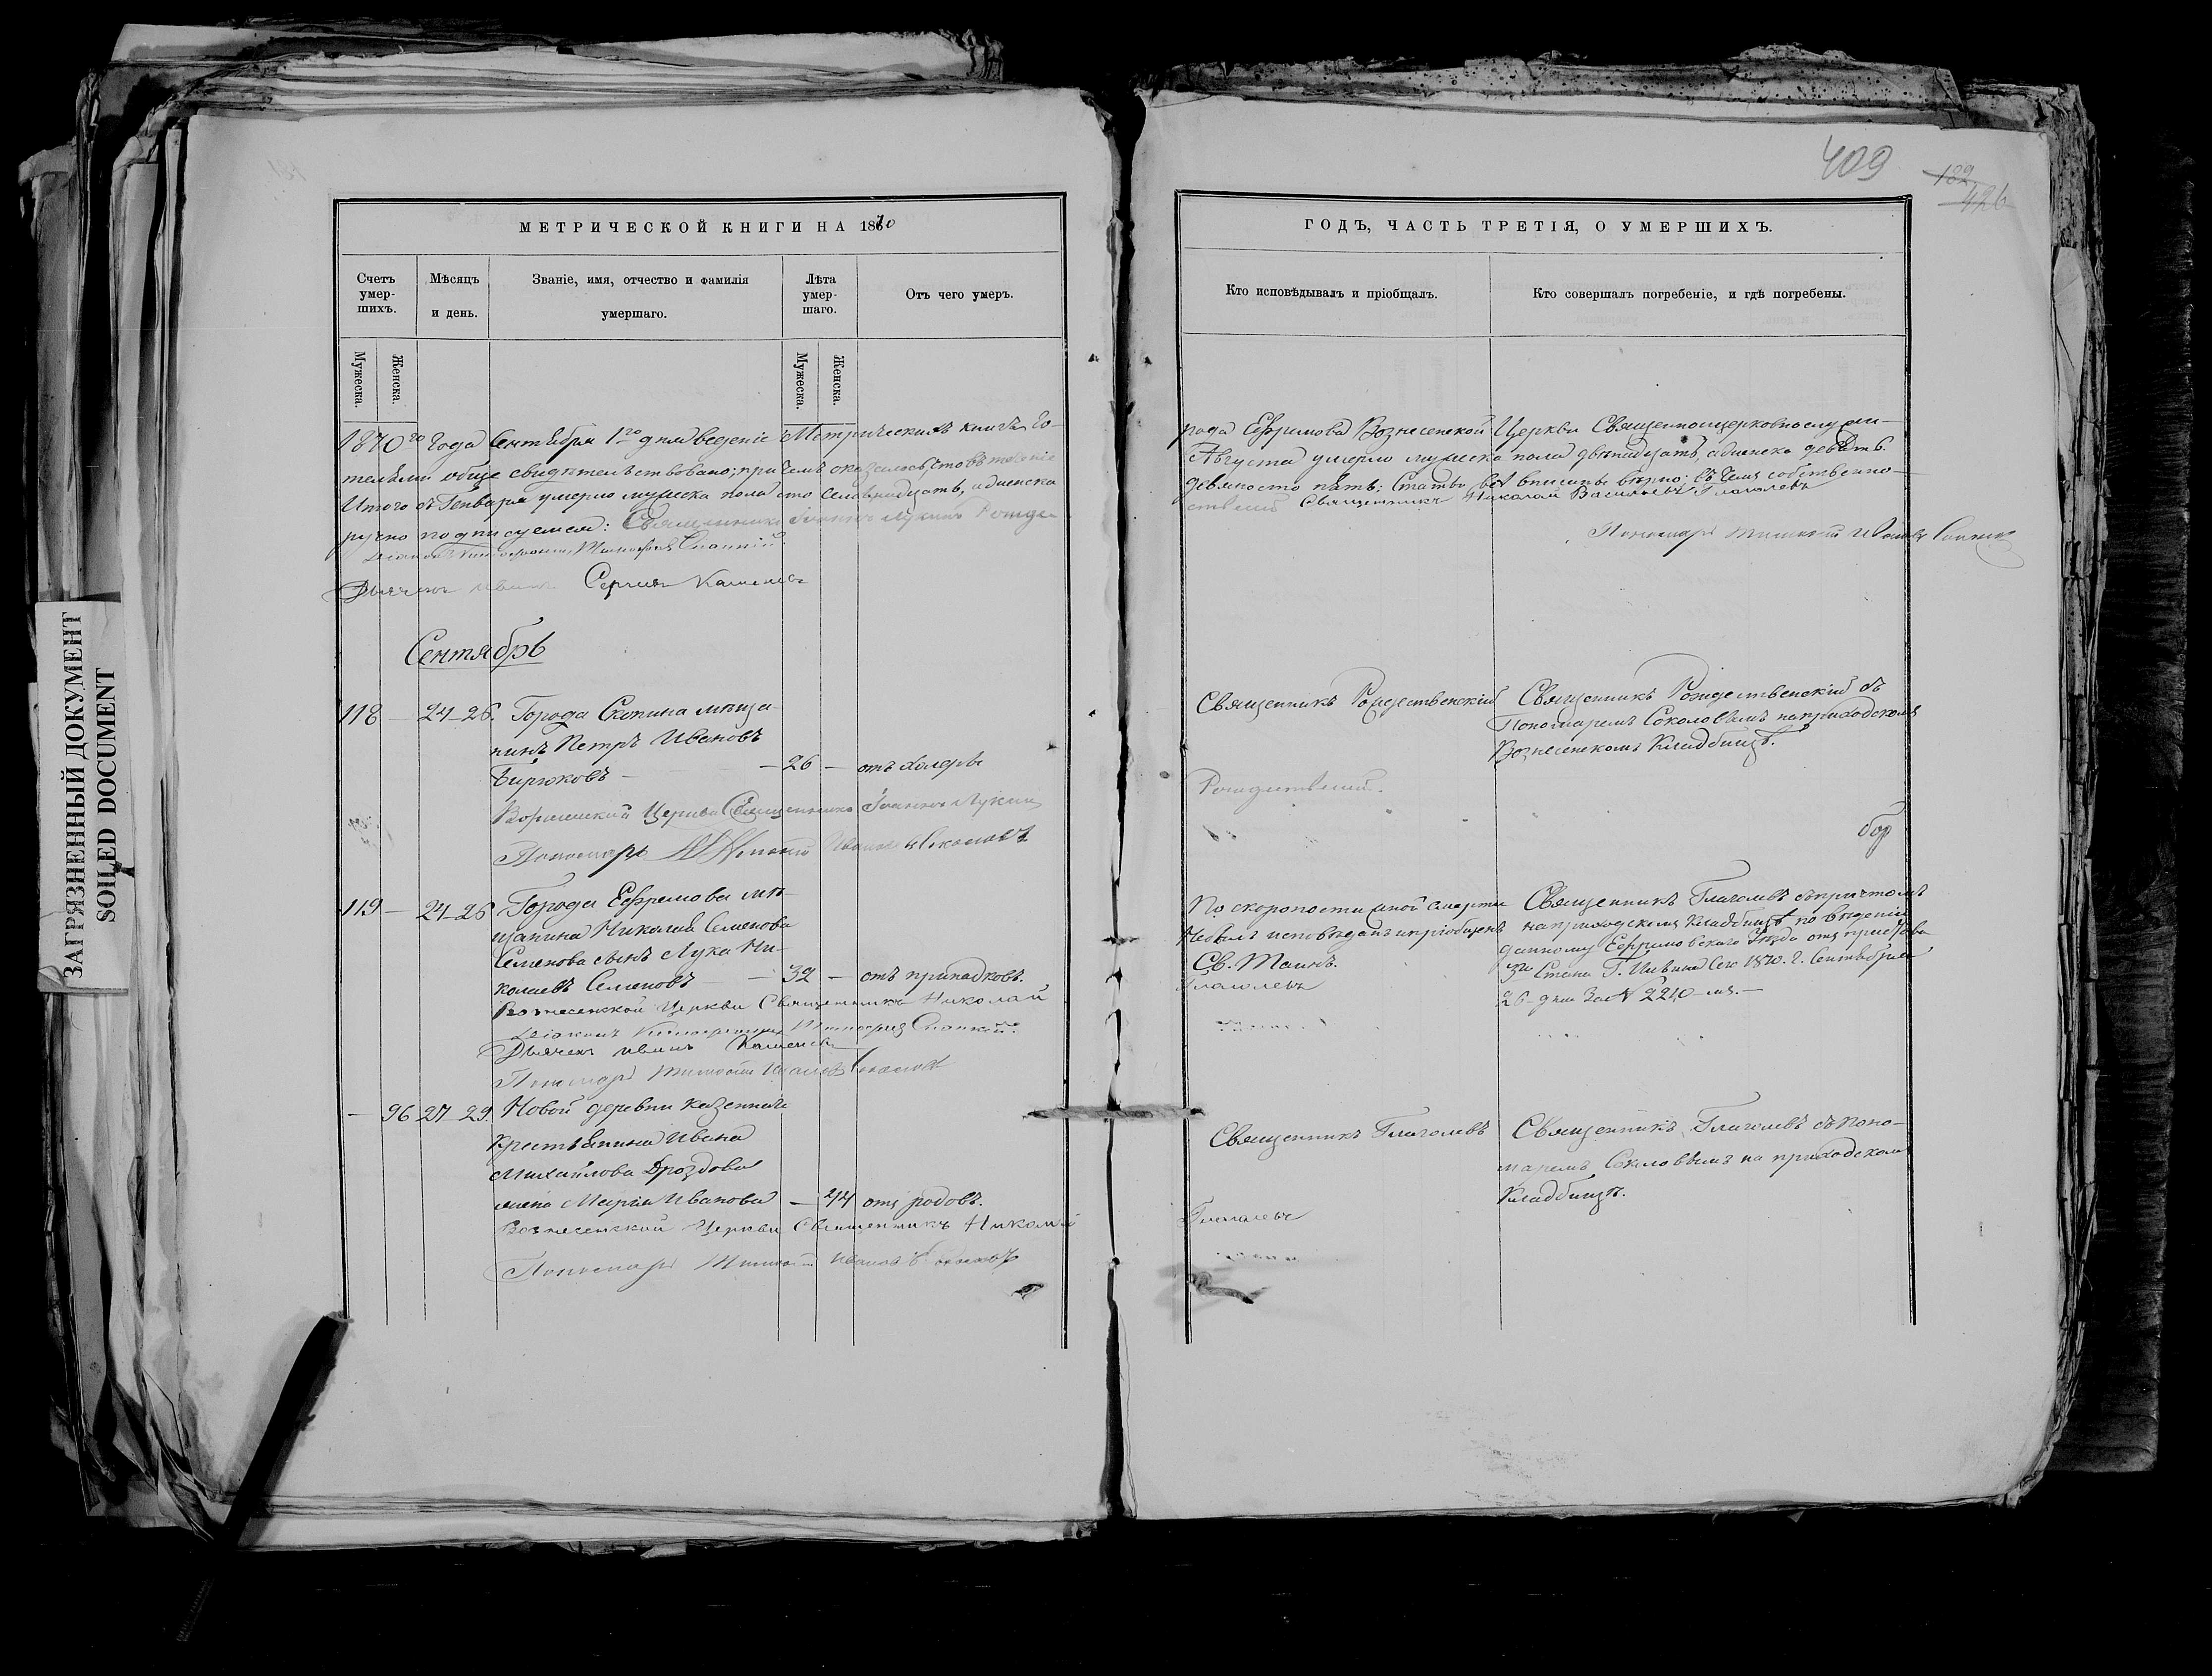 ЗАГРЯЗНЕННЫЙ ДОКУМЕНТ
SOILED DOCUMENT
МЕТРИЧЕСКОЙ КНИГИ НА 1870
Счетъ умер-шихъ.
Мѣсяцъ и день.
Званіе, имя, отчество и фамилія умершаго.
Лѣта умер-шаго.
Отъ чего умеръ.
Мужеска.
Женска.
Мужеска.
Женска.
1870го Года Сентября 1го дня веденіе Метрическихъ книгъ Го-
телями обще свидѣтельствовано; причемъ оказалось, что въ теченіе
Итого съ Генваря умерло мужеска пола сто семнадцать, а женска
ручно подписуемся: Священникъ Іоаннъ Лукинъ
Дьячекъ Иванъ Сергіевъ Каменевъ
Сентябрь
118 — 24-26. Города Скопина мѣща-
нинъ Петръ Ивановъ
Бирюковъ — 26 — отъ холеры
Церкви Священникъ Іоаннъ Лукинъ
Пономарь
119 — 24-26 Города Ефремова мѣ-
щанина Николая Семенова
Семенова сынъ Лука Ни-
колаевъ Семеновъ — 32 — отъ припадковъ.
Вознесенской Церкви Священникъ Николай
Дьячекъ Иванъ Каменевъ
Пономарь Тимофей Ивановъ Соколовъ
— 96 27-29. Новой деревни казеннаго
крестьянина Ивана
Михайлова Дроздова
жена Марія Иванова — 44 отъ родовъ.
Вознесенской Церкви Священникъ Николай
Пономарь Тимофей Ивановъ Соколовъ
409
182
426
ГОДЪ, ЧАСТЬ ТРЕТІЯ, О УМЕРШИХЪ.
Кто исповѣдывалъ и пріобщалъ.
Кто совершалъ погребеніе, и гдѣ погребены.
рода Ефремова Вознесенской Церкви Священноицерковнослужи-
Августа умерло мужеска пола двѣнадцать, а женска девять.
девяносто пять; Статьи всѣ вписаны вѣрно; въ чемъ собственно-
Священникъ Николай Васильевъ Глаголевъ
Пономарь Тимофей Ивановъ
Священникъ Рождественскій
Священникъ Рождественскій съ
Пономаремъ Соколовымъ на приходскомъ
Вознесенскомъ Кладбищѣ.
Рождественскій.
По скоропостижной смерти
Не былъ исповѣданъ и пріобщенъ
Св. Таинъ.
Глаголевъ
Священникъ Глаголевъ съ причтомъ
на приходскомъ кладбищѣ по вѣденію
данному Ефремовскаго Уѣзда отъ пристава
3го Стана Г. 1870. г. Сентября
26 дня за № 2240-мъ.—
Священникъ Глаголевъ
Священникъ Глаголевъ съ Поно-
маремъ Соколовымъ на приходскомъ
Кладбищѣ.
Глаголевъ